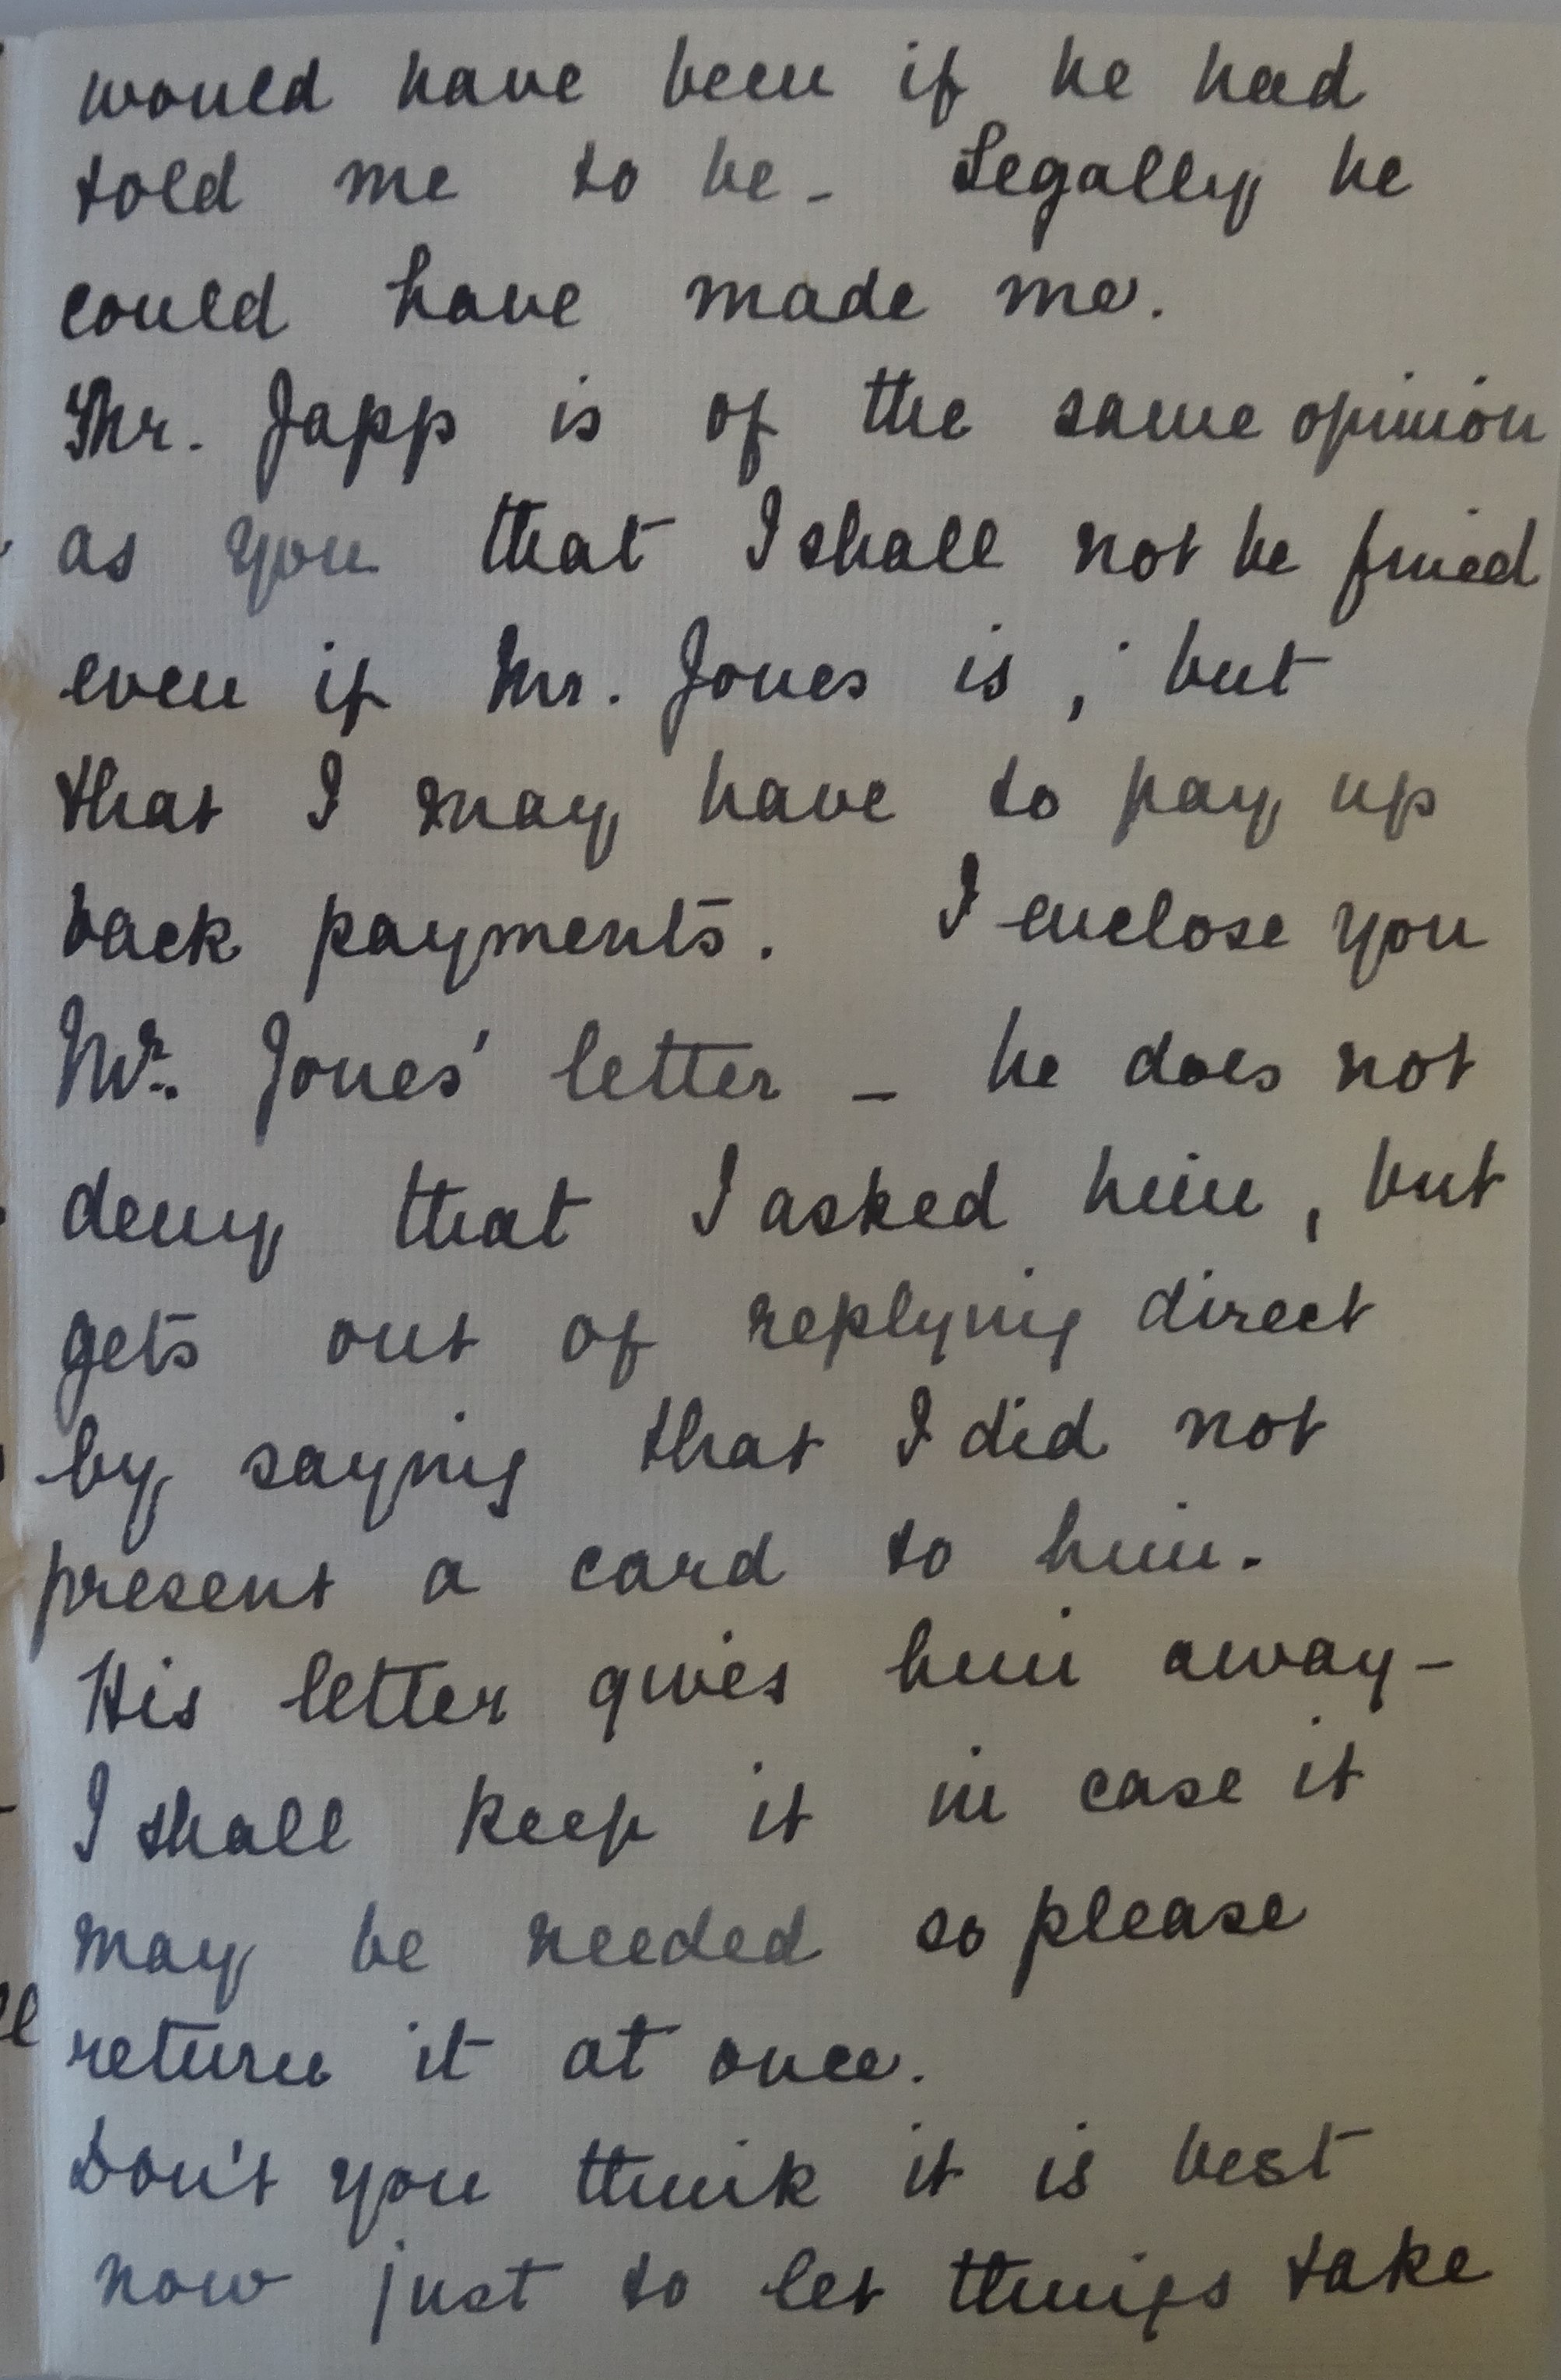 would have been if he had
told me to be - Legally he
could have made me.
Mr. Japp is of the same opinion
as you that I shall not be fined
even if Mr. Jones is, but
that I may have to pay up
back payments. I enclose you
Mr. Jones' letter - he does not
deny that I asked him, but
gets out of replying direct
by saying that I did not
present a card to him.
His letter gives him away -
I shall keep it in case it
may be needed so please
return it at once.
Don't you think it is best
now just to let things take